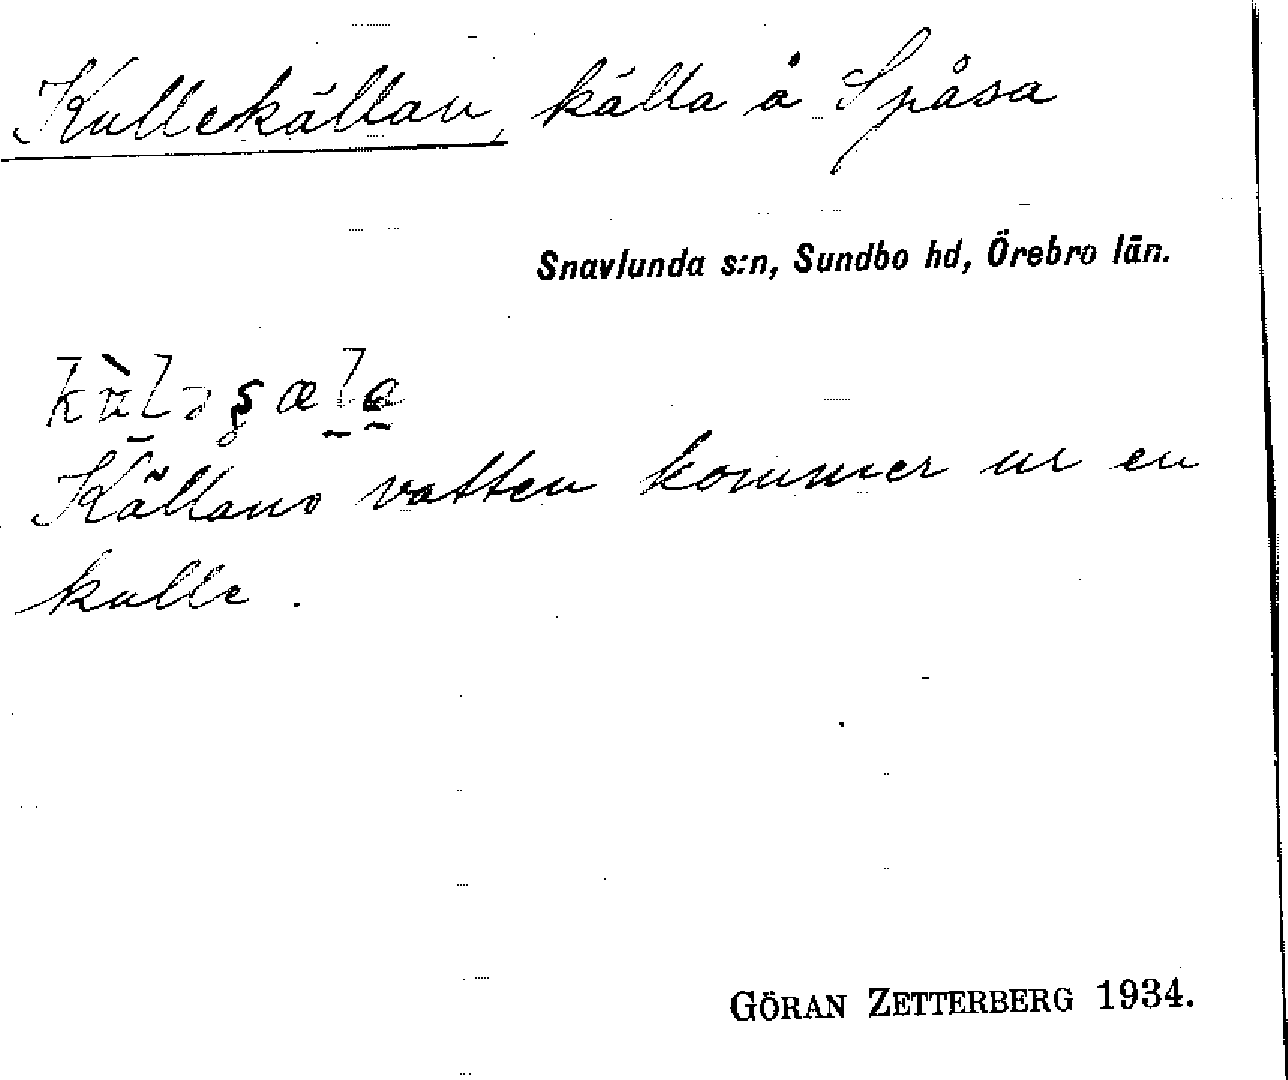 Kullekällan, källa å Spåsa
Snavlunda s:n, Sundbo hd, Örebro län.
Källans vatten kommer ur en
kulle.
GÖRAN ZETTERBERG 1934.